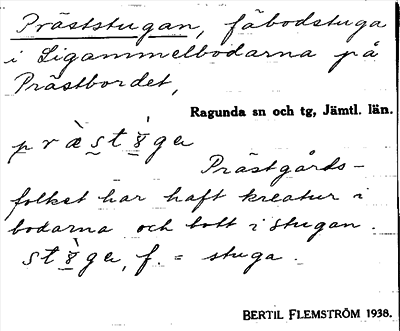 Präststugan, fäbodstuga
i Ligammelbodarna på
Prästbordet,
Ragunda sn och tg, Jämtl. län.
Prästgårds-
folket har haft kreatur i
bodarna och bott i stugan.
f. = stuga.
BERTIL FLEMSTRÖM 1938.